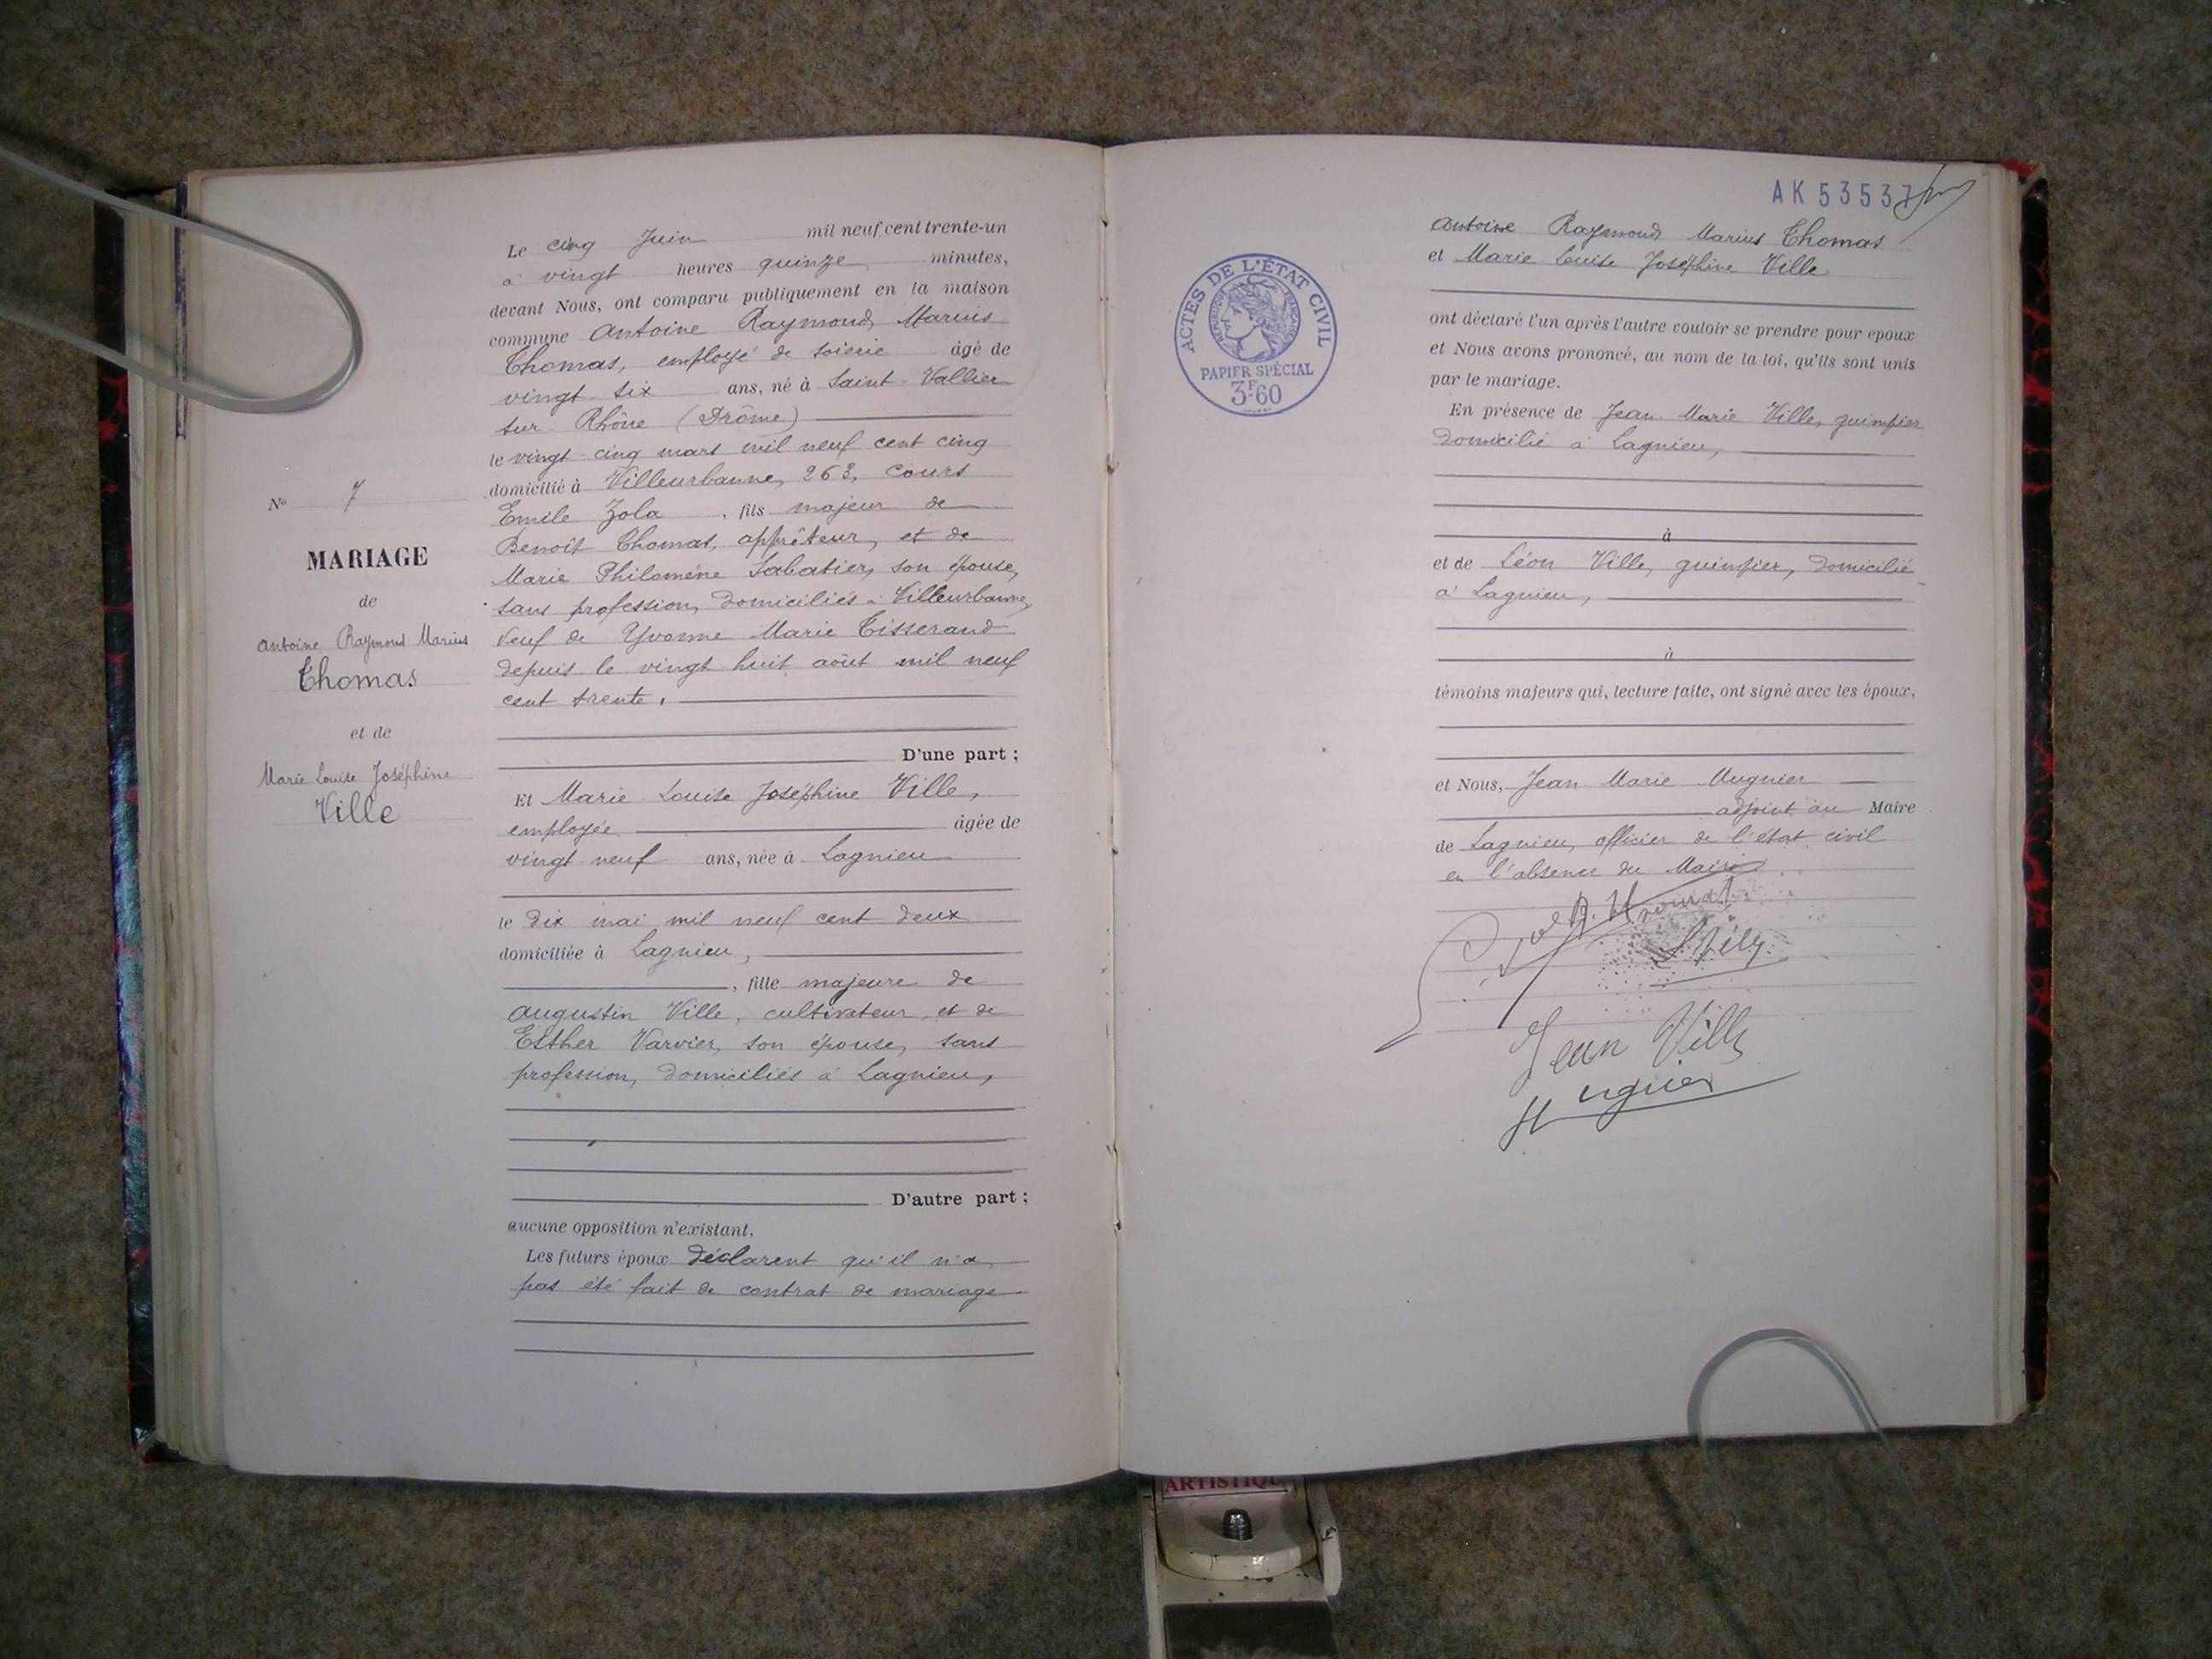 Le cinq Juin mil neuf cent trente-un
à vingt heures quinze minutes,
devant Nous, ont comparu publiquement en la maison
commune Antoine Raymond Marius
Thomas, employé de soierie âgé de
vingt six ans, né à Saint-Vallier
sur Rhône (Drôme)
le vingt-cinq mars mil neuf cent cinq
domicilié à Villeurbanne, 263, Cours
Emile Zola, fils majeur de
Benoît Thomas, apprêteur, et de
Marie Philomène Sabatier, son épouse,
sans profession, domiciliés à Villeurbanne,
Veuf de Yvonne Marie Tisserand
depuis le vingt huit août mil neuf
cent trente.
D'une part ;
Et Marie Louise Joséphine Ville,
employée âgée de
vingt neuf ans, née à Lagnieu
le dix mai mil neuf cent deux
domiciliée à Lagnieu,
, fille majeure de
Augustin Ville, cultivateur, et de
Esther Varvier, son épouse, sans
profession, domiciliés à Lagnieu,
D'autre part ;
aucune opposition n'existant,
Les futurs époux déclarent qu'il n'a
pas été fait de contrat de mariage
No 7
MARIAGE
de
Antoine Raymond Marius
Thomas
et de
Marie Louise Joséphine
Ville
AK 53537
ACTES DE L'ÉTAT CIVIL
RÉPUBLIQUE FRANÇAISE
PAPIER SPÉCIAL
3F60
Antoine Raymond Marius Thomas
et Marie Louise Joséphine Ville
ont déclaré l'un après l'autre vouloir se prendre pour époux
et Nous avons prononcé, au nom de la loi, qu'ils sont unis
par le mariage.
En présence de Jean Marie Ville, guimpier
domicilié à Lagnieu,
à
et de Léon Ville, guimpier, domicilié
à Lagnieu,
à
témoins majeurs qui, lecture faite, ont signé avec les époux,
et Nous, Jean Marie Mugnier
adjoint au Maire
de Lagnieu, officier de l'état civil
en l'absence du Maire
Jean Ville
ARTISTIQU